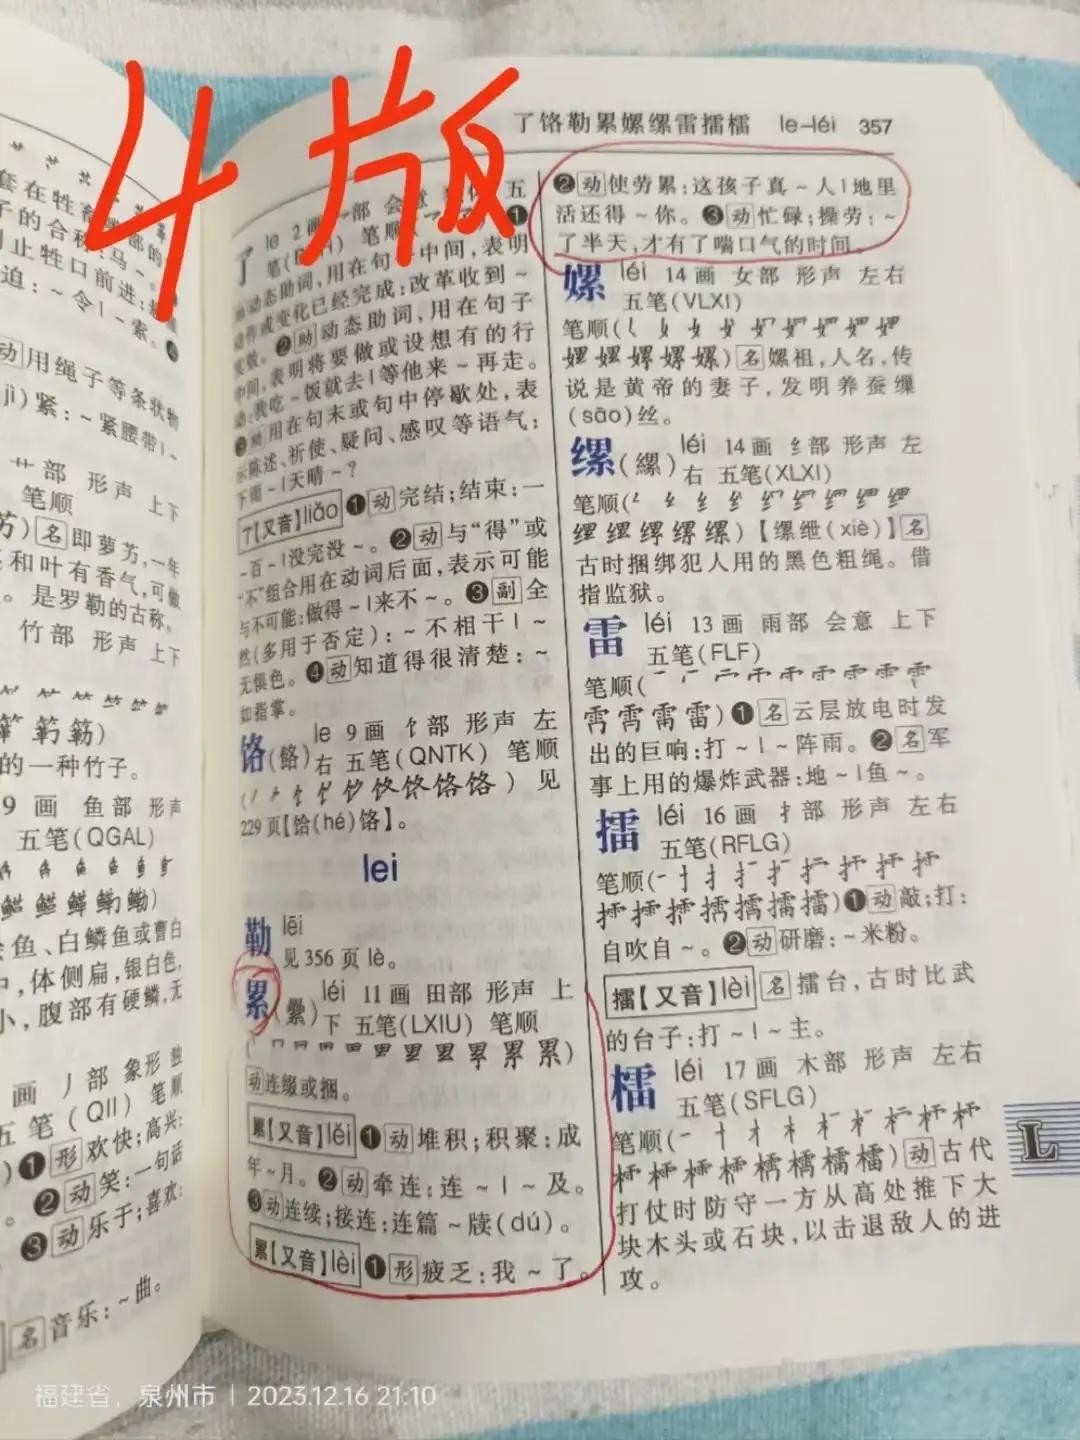 4版
了饹勒累嫘缧雷擂檑 le–léi 357
套在牲
子的合称:马~。
止牲口前进;
迫:~令|~索。❹
动用绳子等条状物
jǐ)紧:~紧腰带|~
艹部 形声 上下
笔顺
艻)名即萝艻,一年
和叶有香气,可做
。是罗勒的古称。
竹部 形声 上下
箩 箣 簕)
的一种竹子。
9 画 鱼部 形声
五笔(QGAL)
鱼、白鳞鱼或曹白
中,体侧扁,银白色,
小,腹部有硬鳞,无
画 丿部 象形 独
五笔(QII) 笔顺
)❶形欢快;高兴:
。❷动笑:一句话
❸动乐于;喜欢:
名音乐:~曲。
了 le 2画 部 会意 五
笔( H) 笔顺( ) ❶
助动态助词,用在句中间,表明
动作或变化已经完成:改革收到~
实效。❷助动态助词,用在句子
中间,表明将要做或设想有的行
动:我吃~饭就去|等他来~再走。
❸助用在句末或句中停歇处,表
示陈述、祈使、疑问、感叹等语气:
下雨~|天晴~?
了【又音】liǎo ❶动完结;结束:一
~百~|没完没~。❷动与“得”或
“不”组合用在动词后面,表示可能
与不可能:做得~|来不~。❸副全
然(多用于否定):~不相干|~
无惧色。❹动知道得很清楚:~
如指掌。
饹(餎) le 9画 饣部 形声 左
右 五笔(QNTK) 笔顺
( ) 见
229页【饸(hé)饹】。
lei
勒 lēi
见356页lè。
累(纍) léi 11画 田部 形声 上
下 五笔(LXIU) 笔顺
( 累)
动连缀或捆。
累【又音】lěi ❶动堆积;积聚:成
年~月。❷动牵连:连~|~及。
❸动连续;接连:连篇~牍(dú)。
累【又音】lèi ❶形疲乏:我~了。
❷动使劳累:这孩子真~人|地里
活还得~你。❸动忙碌;操劳:~
了半天,才有了喘口气的时间。
嫘 léi 14画 女部 形声 左右
五笔(VLXI)
笔顺(
嫘)名嫘祖,人名,传
说是黄帝的妻子,发明养蚕缫
(sāo)丝。
缧(縲) léi 14画 纟部 形声 左
右 五笔(XLXI)
笔顺(
缧)【缧绁(xiè)】名
古时捆绑犯人用的黑色粗绳。借
指监狱。
雷 léi 13画 雨部 会意 上下
五笔(FLF)
笔顺(
雷)❶名云层放电时发
出的巨响:打~|~阵雨。❷名军
事上用的爆炸武器:地~|鱼~。
擂 léi 16画 扌部 形声 左右
五笔(RFLG)
笔顺(
擂)❶动敲;打:
自吹自~。❷动研磨:~米粉。
擂【又音】lèi 名擂台,古时比武
的台子:打~|~主。
檑 léi 17画 木部 形声 左右
五笔(SFLG)
笔顺(
檑)动古代
打仗时防守一方从高处推下大
块木头或石块,以击退敌人的进
攻。
L
福建省,泉州市 | 2023.12.16 21:10